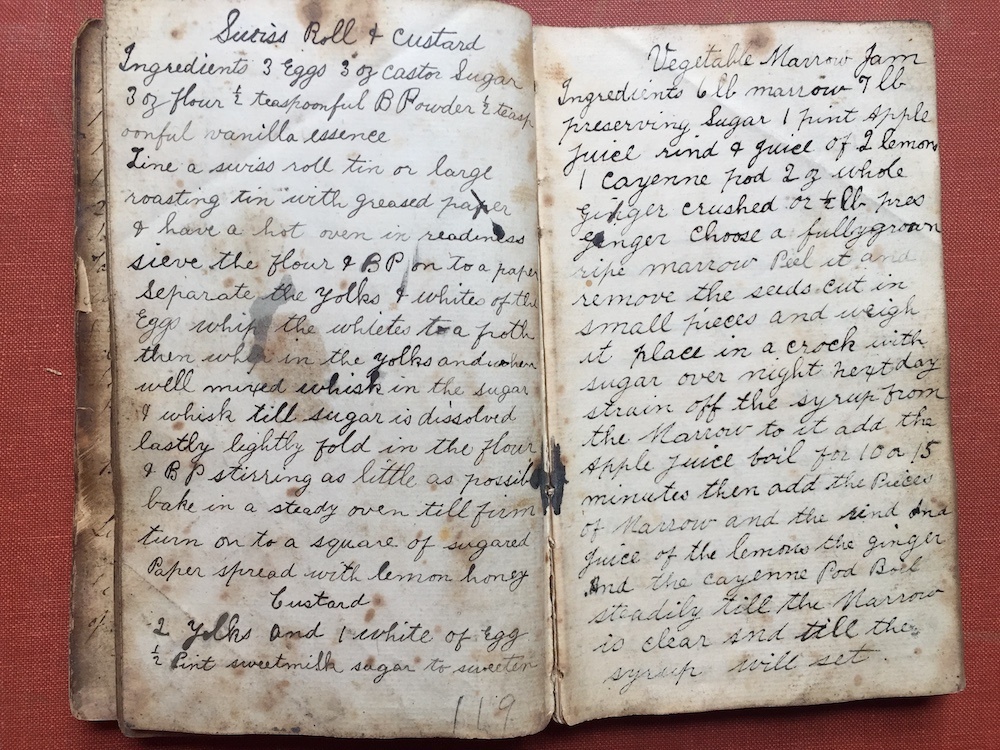 Swiss Roll & Custard
Ingredients 3 Eggs 3 oz Castor Sugar
3 oz flour ½ teaspoonful B Powder ½ teasp
oonful vanilla essence
Line a swiss roll tin or large
roasting tin with greased paper
& have a hot oven in readiness
sieve the flour & B P on to a paper
Separate the Yolks & whites of the
Eggs whip the whites to a froth
then in the yolks and when
well mixed whisk in the sugar
& whisk till sugar is dissolved
lastly lightly fold in the flour
& B P stirring as little as possib
bake in a steady oven till firm
turn on to a square of sugared
Paper spread with lemon honey
Custard
2 Yolks and 1 white of Egg
½ Pint sweetmilk sugar to sweeten
119
Vegetable Marrow Jam
Ingredients 6 lb marrow 7 lb
preserving Sugar 1 pint Apple
Juice rind & juice of 2 lemons
1 Cayenne pod 2 oz whole
ginger crushed or lb pres
ginger Choose a fully grown
ripe marrow Peel it and
remove the seeds cut in
small pieces and weigh
it place in a crock with
sugar over night next day
strain off the syrup from
the Marrow to it add the
Apple Juice boil for 10 or 15
minutes then add the Pieces
of Marrow and the rind and
Juice of the lemons the ginger
And the cayenne Pod Boil
steadily till the Marrow
is clear and till the
syrup will set.